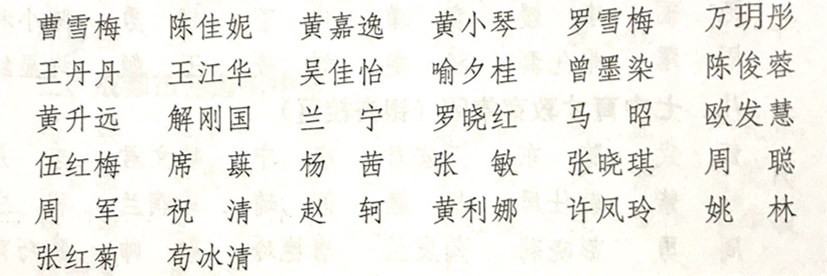 曹雪梅 陈佳妮 黄嘉逸 黄小琴 罗雪梅 万玥彤
王丹丹 王江华 吴佳怡 喻夕桂 曾墨染 陈俊蓉
黄升远 解刚国 兰宁 罗晓红 马昭 欧发慧
伍红梅 席蕻 杨茜 张敏 张晓琪 周聪
周军 祝清 赵轲 黄利娜 许凤玲 姚林
张红菊 苟冰清